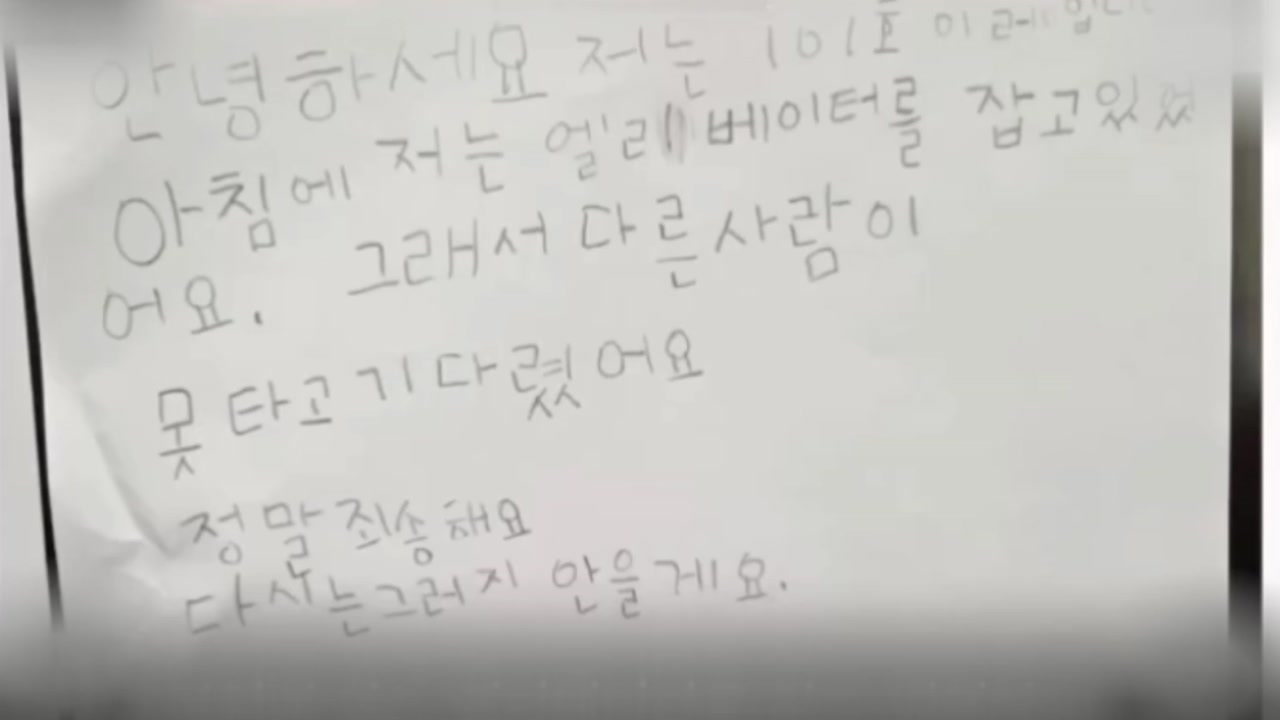 안녕하세요 저는 101호 이레입니다
아침에 저는 엘리베이터를 잡고있었
어요. 그래서 다른사람이
못 타고 기다렸어요
정말 죄송해요
다시는그러지 안을게요.